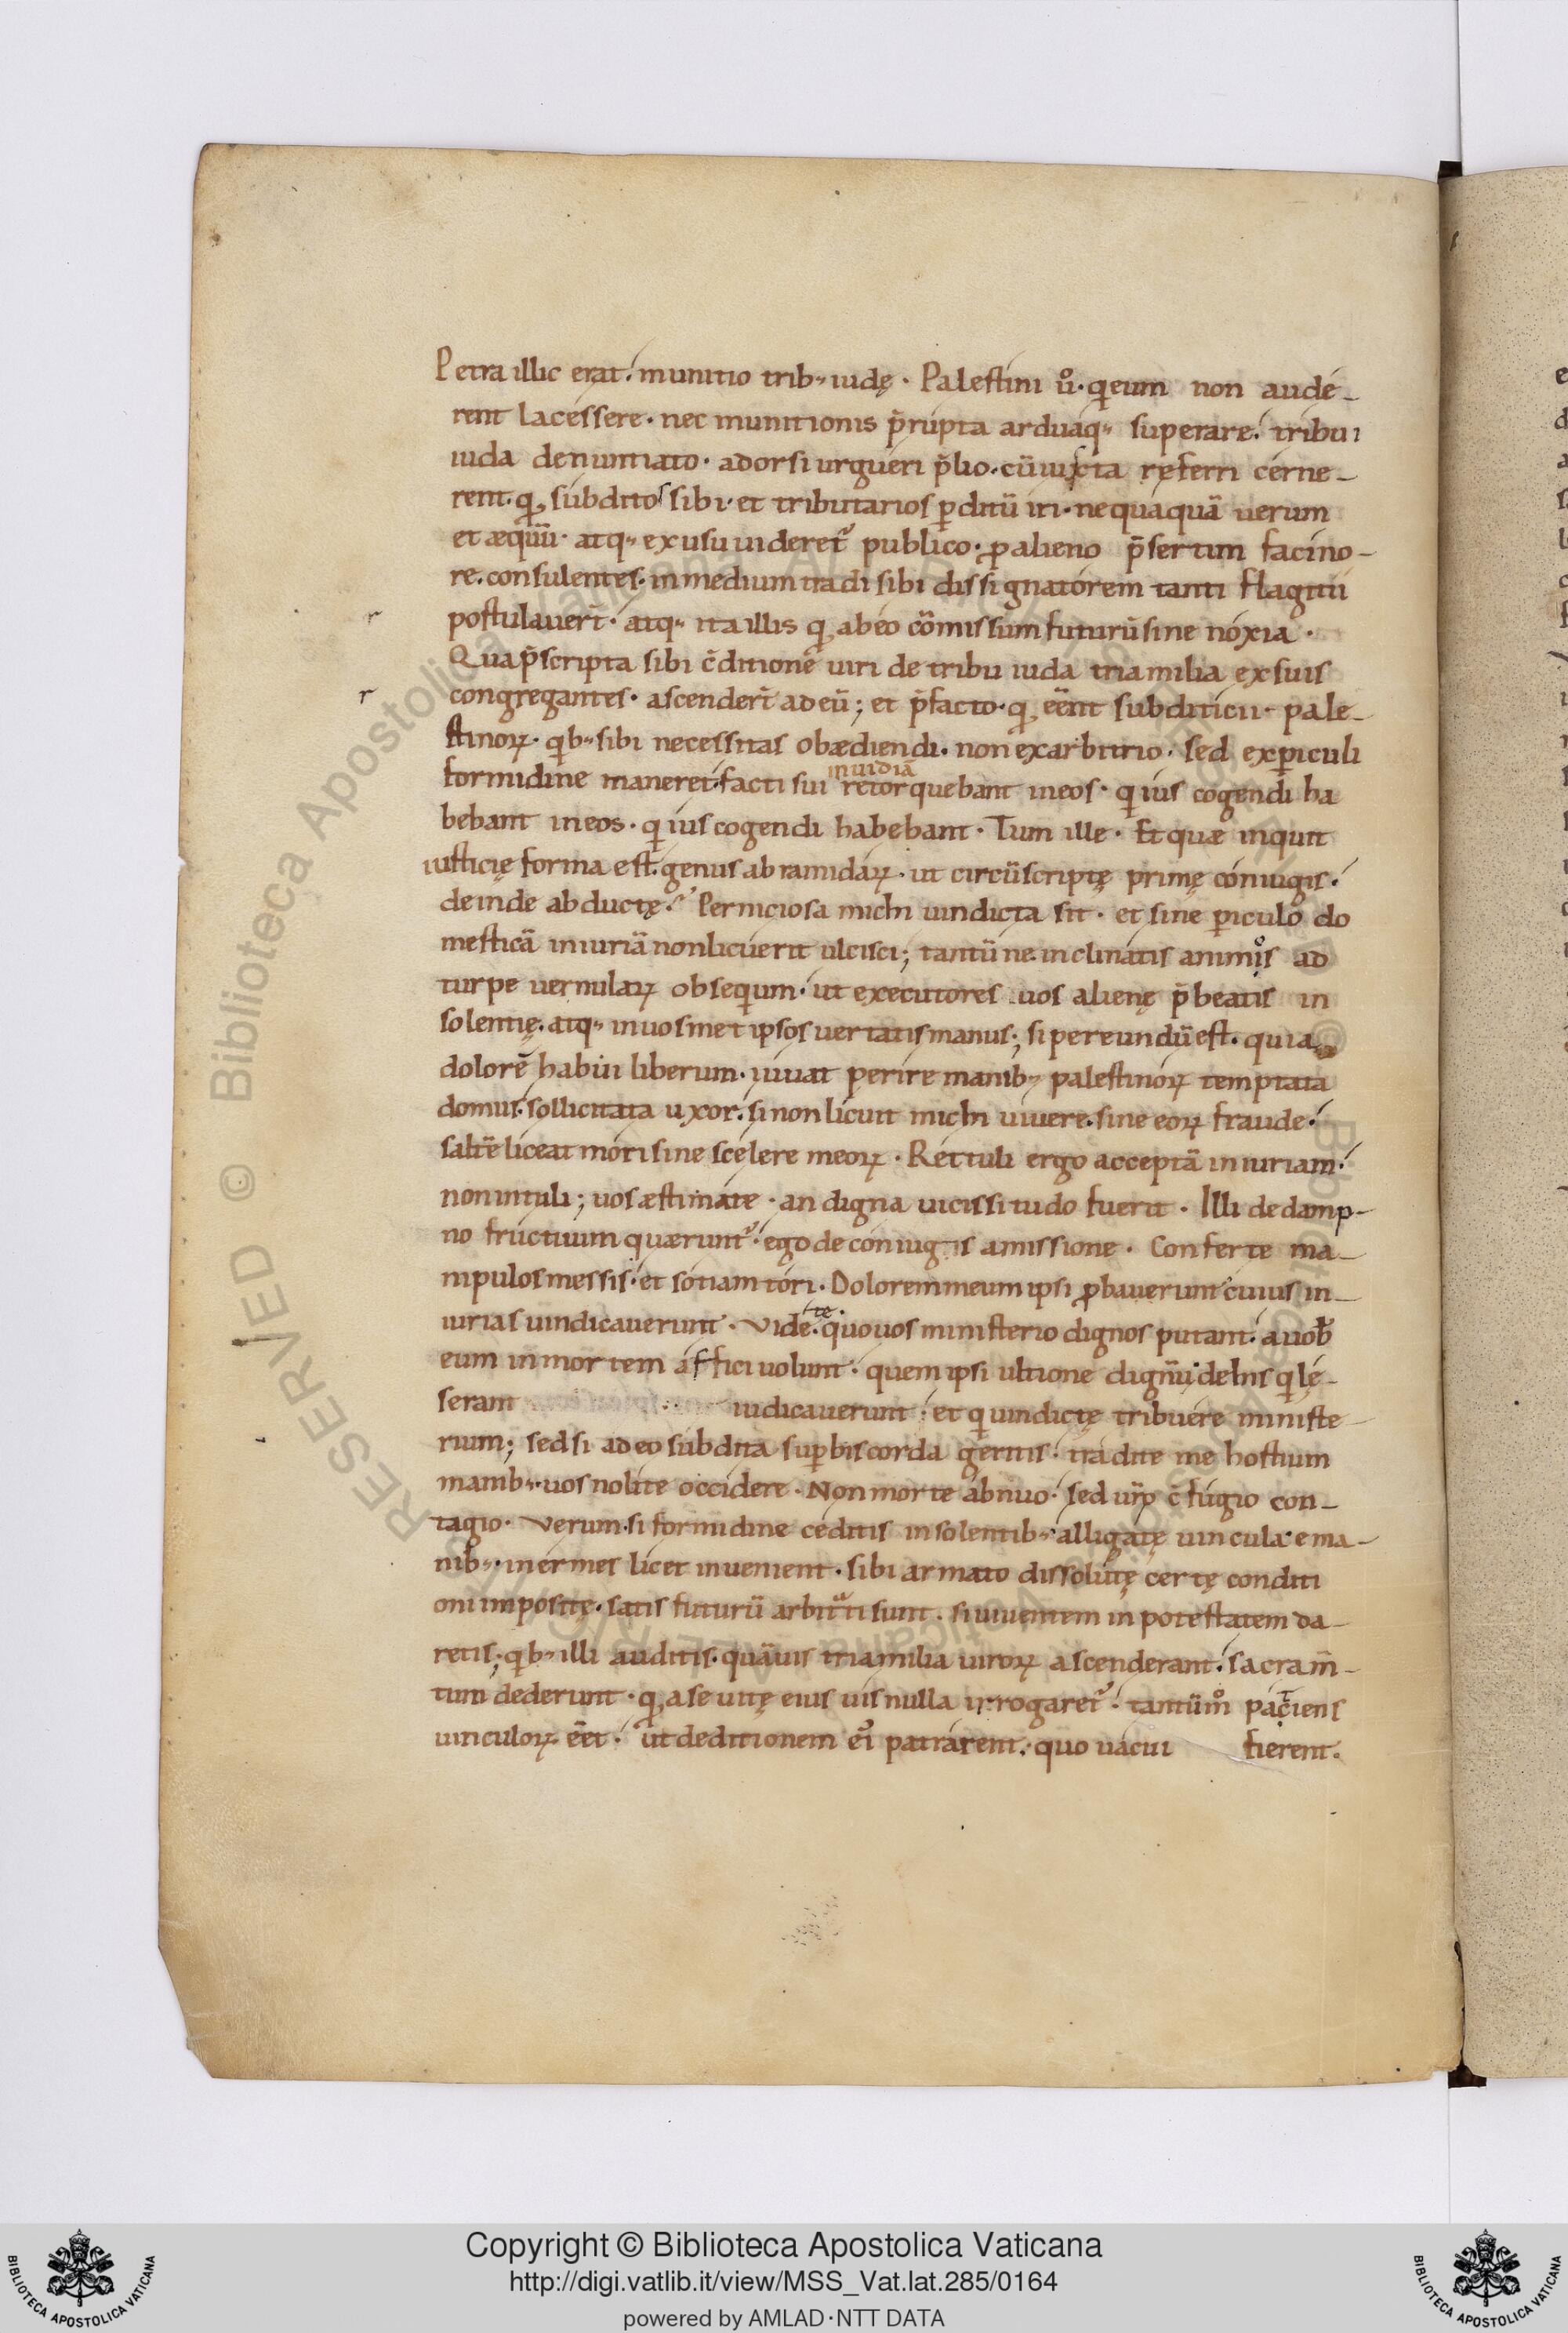 Petra illic erat. munitio trib; iudę. Palestini ů. q̣ eum non aude-
rent lacessere. nec munitionis p̄rupta arduaq; superare. tribui
iuda denuntiato. adorsi urgueri p̄lio. cū iuxta referri cerne-
rent. q̣ subditos sibi et tributarios ꝑditū iri. nequaquā uerum
et æquū. atq; ex usu uideret᷒ publico. ꝓ alieno p̄sertim facino-
re. consulentes. in medium tradi sibi dissignatorem tanti flagitii
postulauer̄t. atq; ita illis q̣ ab eo cōmissum futurū sine noxia.
Qua p̄scripta sibi c̄ditione uiri de tribu iuda tria milia ex suis
congregantes. ascender̄t ad eū; et p̄facto. q̣ eēnt subditicii pale-
stinoꝝ. qb; sibi necessitas obædiendi. non ex arbitrio. sed ex ꝑiculi
formidine maneret. facti sui inuidiā retorquebant in eos. q̣ ius cogendi ha
bebant in eos. q̣ ius cogendi habebant. Tum ille. Et quæ inquit
iusticię forma est. genus abramidaꝝ. ut circūscriptę primę coniugis.
deinde abductę. Perniciosa michi uindicta sit. et sine ꝑiculo do
mesticā iniuriā non licuerit ulcisci; tantū ne inclinatis animis ad
turpe uernulaꝝ obsequium. ut executores uos alienę p̄beatis in
solentię. atq; in uosmet ipsos uertatis manus; si pereundū est. quia
dolorē habui liberum. iuuat perire manib; palestinoꝝ temptata
domus. sollicitata uxor. si non licuit michi uiuere. sine eoꝝ fraude.
saltē liceat mori sine scelere meoꝝ. Rettuli ergo acceptā iniuriam.
non intuli; uos æstimate. an digna uicissitudo fuerit. Illi de damp-
no fructuum quærunt᷒. ego de coniugis amissione. Conferte ma-
nipulos messis. et sotiam tori. Dolorem meum ipsi ꝓbauerunt cuius in-
iurias uindicauerunt. Videte. quo uos ministerio dignos putant. a uob̄
eum in mortem affici uolunt. quem ipsi ultione dignū de his q̣ lę-
serant iudicauerunt. et q̣ uindictę tribuere ministe-
rium; sed si adeo subdita suꝑbis corda geritis. tradite me hostium
manib;. uos nolite occidere. Non morte abnuo. sed ur̄ꝑ c̄fugio con-
tagio. Verum si formidine ceditis insolentib; alligatę uincula e ma-
nib;. inermes licet inuenient. sibi armato dissolutę certę conditi
oni impositę. satis futurū arbitrati sunt. si uiuentem in potestatem da-
retis; qb; illi auditis. quāuis tria milia uiroꝝ ascenderant. sacram̄-
tum dederunt. q̣ a se uitę eius uis nulla irrogaret᷒. tantūm̊ paciens
uinculoꝝ eēt. ut deditionem ei patrarent. quo uacui fierent.
Copyright © Biblioteca Apostolica Vaticana
http://digi.vatlib.it/view/MSS_Vat.lat.285/0164
powered by AMLAD·NTT DATA
BIBLIOTECA APOSTOLICA VATICANA
BIBLIOTECA APOSTOLICA VATICANA